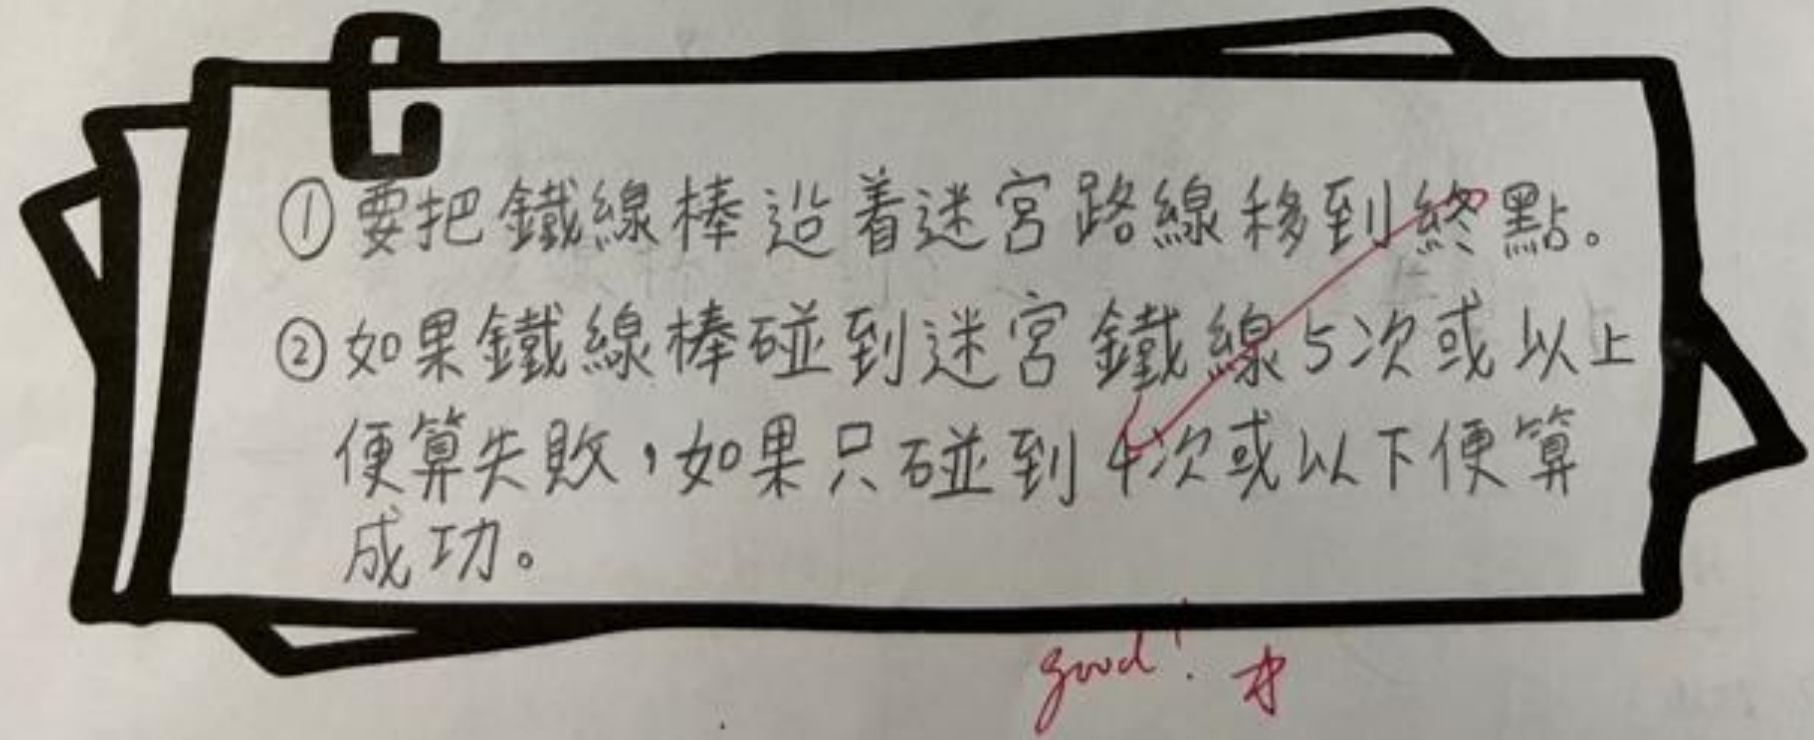 ①要把鐵線棒迨着迷宮路線移到終點。
②如果鐵線棒碰到迷宮鐵線5次或以上
便算失敗，如果只碰到4次或以下便算
成功。
good!